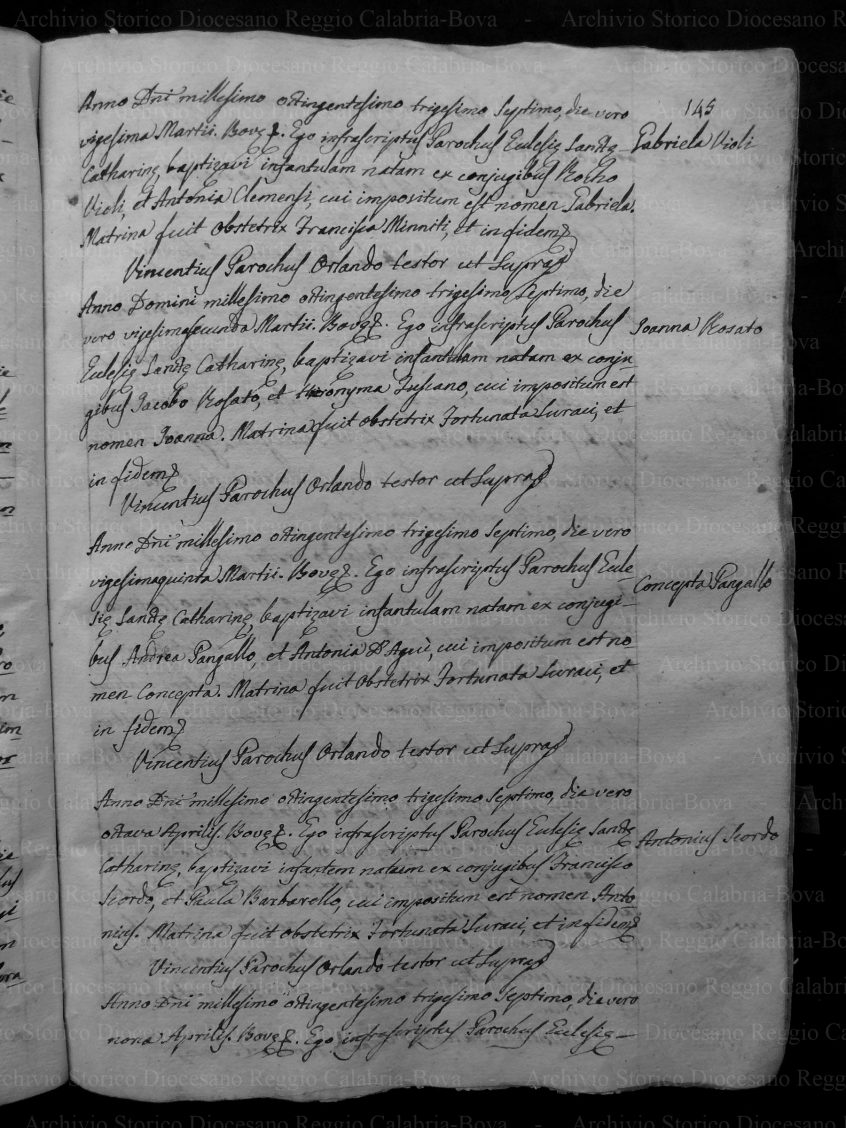 145
Anno Dni millesimo octingentesimo trigesimo septimo, die vero
vigesima Martii. Bovę. Ego infrascriptus Parochus Eclesię Sanctę
Gabriela Violi
Catharinę, baptizavi infantulam natam ex conjugibus Rocho
Violi, et Antonia Clemensi, cui impositum est nomen Gabriela.
Matrina fuit obstetrix Francisca Minniti, et in fidem
Vincentius Parochus Orlando testor ut supra
Anno Domini millesimo octingentesimo trigesimo septimo, die
vero vigesimasecunda Martii. Bovę. Ego infrascriptus Parochus
Joanna Rosato
Eclesię Sanctę Catharinę, baptizavi infantulam natam ex conju
gibus Jacobo Rosato, et Hieronyma Tuscano, cui impositum est
nomen Joanna. Matrina fuit obstetrix Fortunata Suraci, et
in fidem
Vincentius Parochus Orlando testor ut supra
Anno Dni millesimo octingentesimo trigesimo septimo, die vero
vigesimaquinta Martii. Bovę. Ego infrascriptus Parochus Ecle
Concepta Pangallo
się Sanctę Catharinę, baptizavi infantulam natam ex conjugi-
bus Andrea Pangallo, et Antonia D'Aguì, cui impositum est no
men Concepta. Matrina fuit Obstetrix Fortunata Suraci, et
in fidem
Vincentius Parochus Orlando testor ut supra
Anno Dni millesimo octingentesimo trigesimo septimo, die vero
octava Aprilis. Bovę. Ego infrascriptus Parochus Eclesię Sanctę
Antonius Scordo
Catharinę, baptizavi infantem natum ex conjugibus Francisco
Scordo, et Paula Barbarello, cui impositum est nomen Anto
nius. Matrina fuit obstetrix Fortunata Suraci, et in fidem
Vincentius Parochus Orlando testor ut supra
Anno Dni millesimo octingentesimo trigesimo septimo, die vero
nona Aprilis. Bovę. Ego infrascriptus Parochus Eclesię
Archivio Storico Diocesano Reggio Calabria-Bova